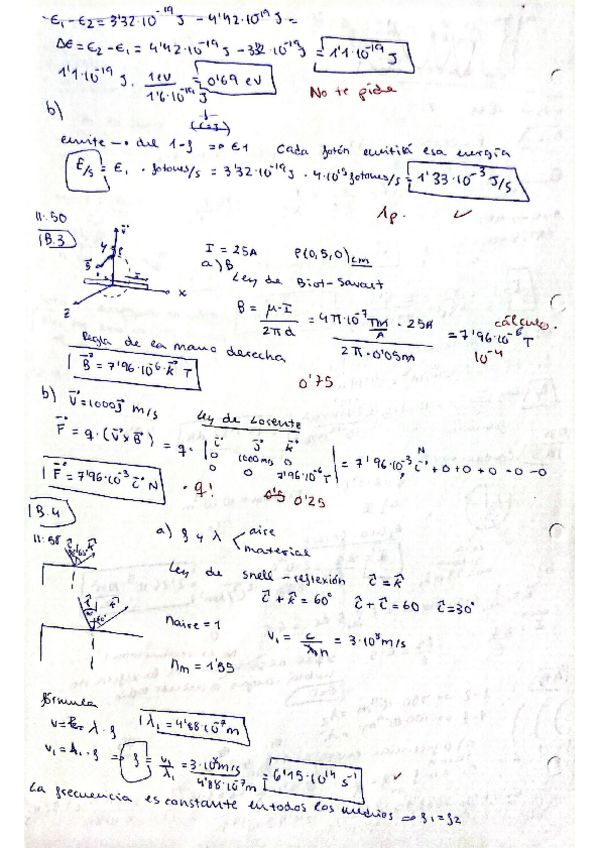 ε₁ - ε₂ = 3'32·10⁻¹⁹ J - 4'42·10⁻¹⁹ J =
Δε = ε₂ - ε₁ = 4'42·10⁻¹⁹ J - 3'32·10⁻¹⁹ J = 1'1·10⁻¹⁹ J
1'1·10⁻¹⁹ J · 1 eV / 1'6·10⁻¹⁹ J = 0'69 eV
No te pide
b)
emite → del 1-f ⇒ ε1 Cada fotón emitirá esa energía
E/s = ε₁ · fotones/s = 3'32·10⁻¹⁹ J · 4·10¹⁵ fotones/s = 1'33·10⁻³ J/s
1p. ✓
11:50
B.3
I = 25A P(0,5,0) cm
a) B
Ley de Biot-Savart
B = μ·I / 2πd = 4π·10⁻⁷ Tm/A · 25A / 2π·0'05m = 7'96·10⁻⁶ T
cálculo.
10⁻⁴
x
z
Regla de la mano derecha
B⃗ = 7'96·10⁻⁶·k⃗ T
0'75
b) v⃗ = 1000 j⃗ m/s
Ley de Lorente
F⃗ = q·(v⃗×B⃗) = q· | i⃗ j⃗ k⃗ 0 1000m/s 0 0 0 7'96·10⁻⁶ T | = 7'96·10⁻³ i⃗ N + 0 + 0 + 0 - 0 - 0
F⃗ = 7'96·10⁻³ i⃗ N
· q! 0'5 0'25
B.4
11:55
a) f y λ aire
material
Ley de snell-reflexión î = k̂
î + k̂ = 60° î + î = 60 î = 30°
n aire = 1
v₁ = c / n = 3·10⁸ m/s
n m = 1'55
fórmula
v = λ·f
λ₁ = 4'88·10⁻⁷ m
v₁ = λ₁·f ⇒ f = v₁/λ₁ = 3·10⁸ m/s / 4'88·10⁻⁷ m = 6'15·10¹⁴ s⁻¹
✓
La frecuencia es constante en todos los medios ⇒ f1 = f2